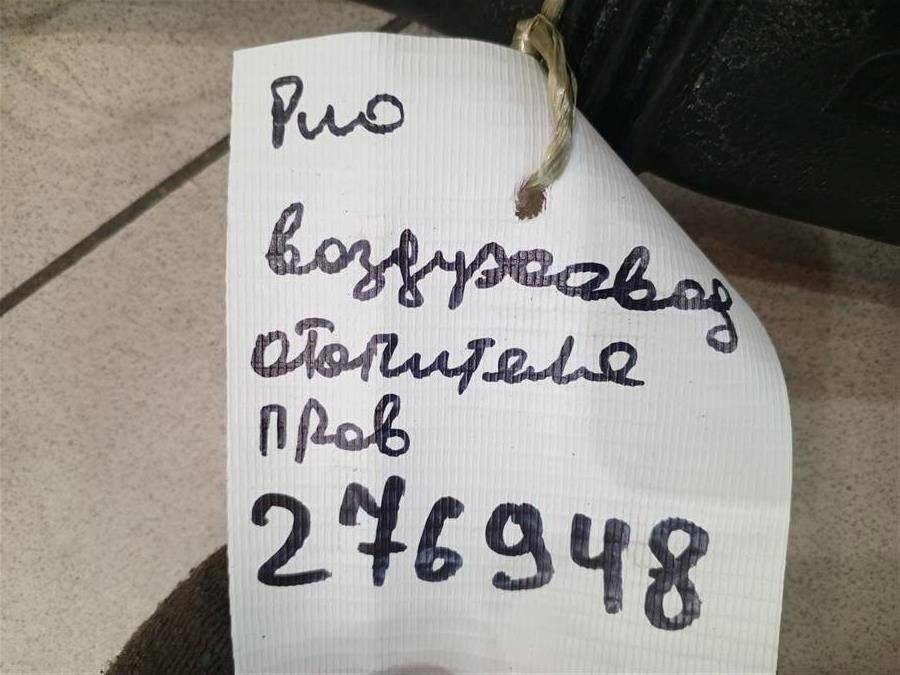 Рио
воздухавод
отопителя
прав
276948